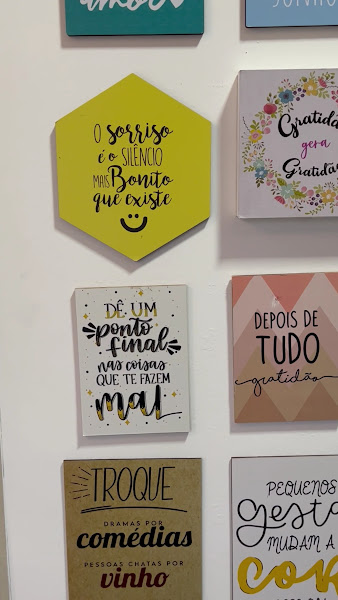 amor
O sorriso
é o SILÊNCIO
MAIS Bonito
que existe
Gratidão
gera
Gratidão
DÊ UM
ponto
final
nas coisas
QUE TE FAZEM
mal
DEPOIS DE
TUDO
gratidão
TROQUE
DRAMAS POR
comédias
PESSOAS CHATAS POR
vinho
PEQUENOS
gestos
MUDAM A